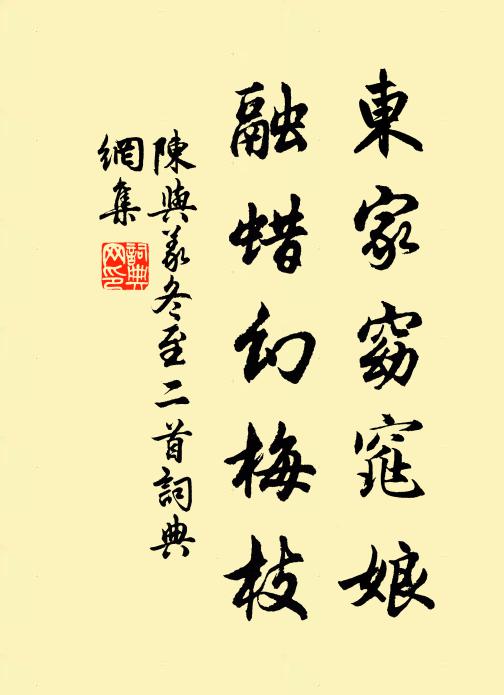 東家窈窕娘
融蜡幻梅枝
陳與義冬至二首詞典
網集
詞典
网印